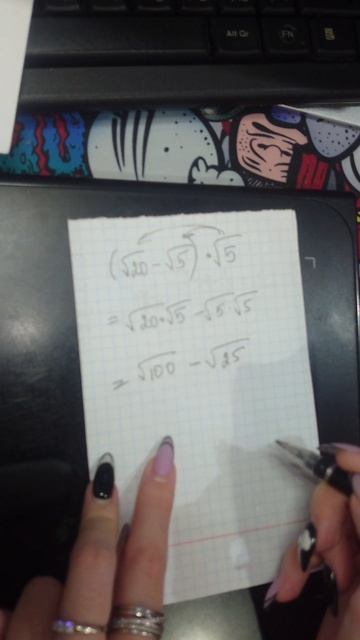 Alt Gr FN
(√20 - √5) · √5
= √20 · √5 - √5 · √5
= √100 - √25